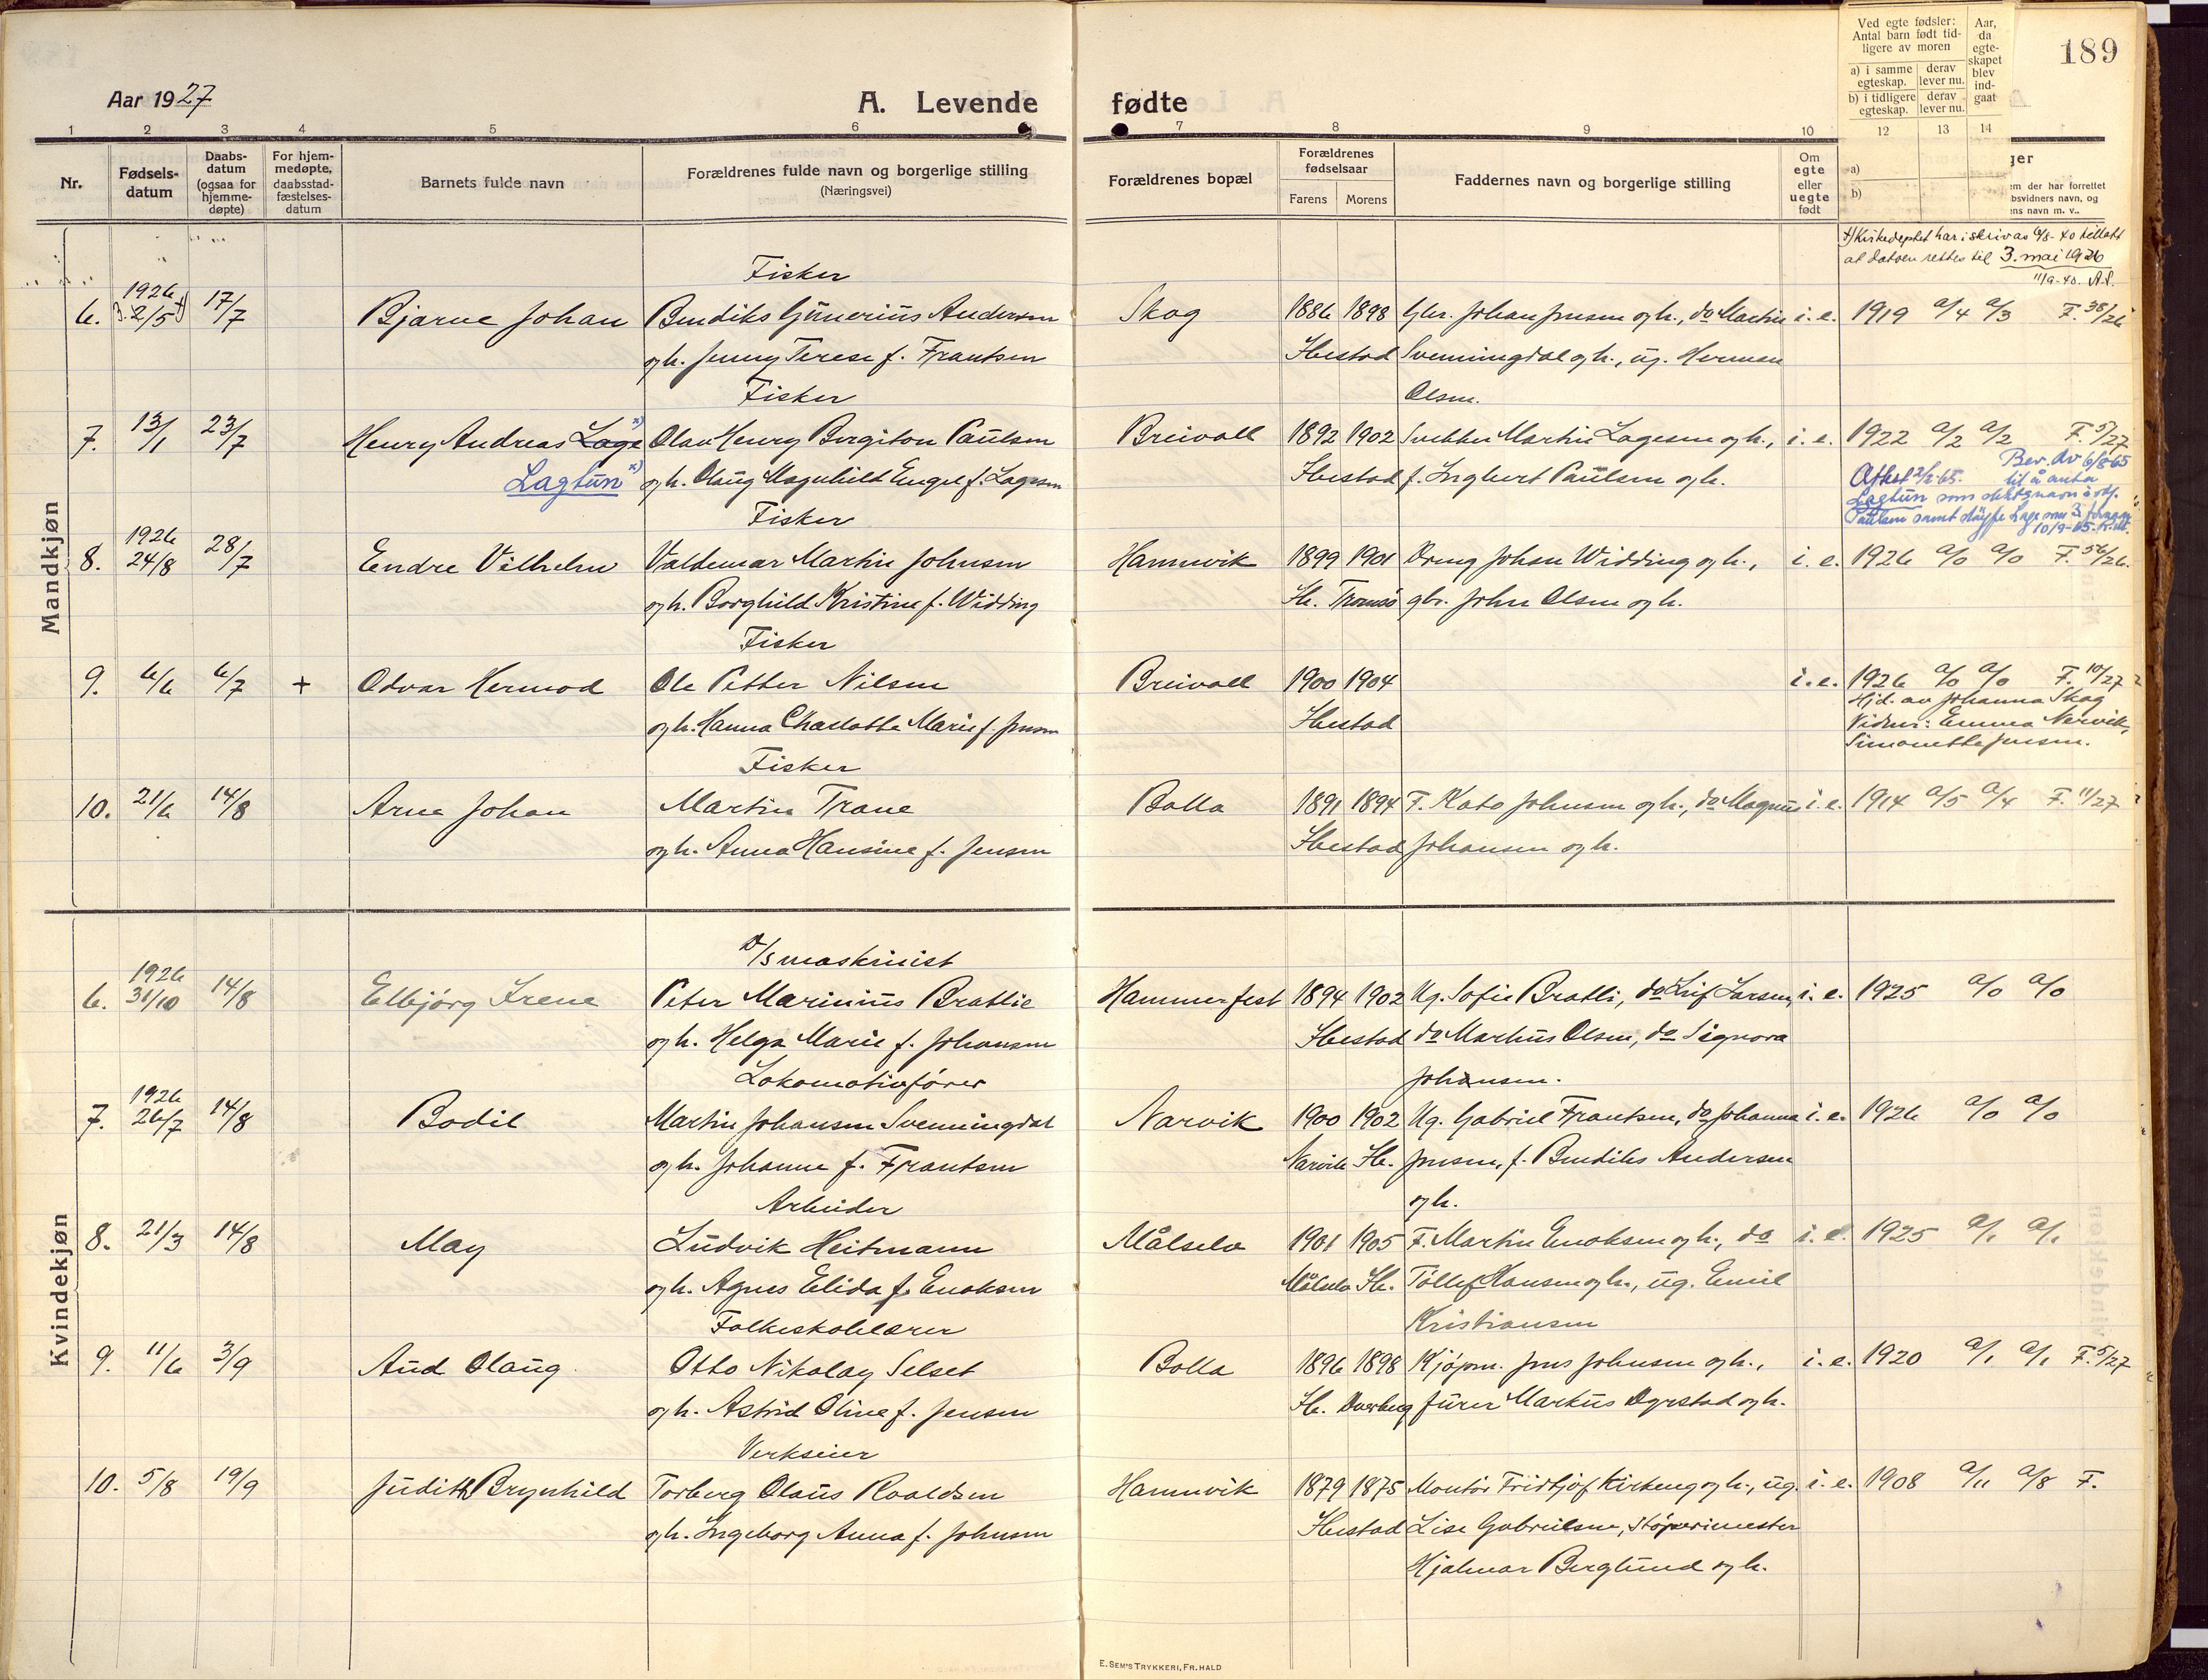 Aar 1927
A. Levende fødte
189
Ved egte fødsler:
Antal barn født tid-
ligere av moren
a) i samme egteskap.
derav lever nu.
b) i tidligere egteskap.
derav lever nu.
Aar, da egte-
skapet blev ind-
gaat
1 2 3 4 5 6 7 8 9 10 12 13 14
Nr.
Fødsels-
datum
Daabs-
datum
(ogsaa for
hjemme-
døpte)
For hjem-
medøpte,
daabsstad-
fæstelses-
datum
Barnets fulde navn
Forældrenes fulde navn og borgerlige stilling
(Næringsvei)
Forældrenes bopæl
Forældrenes
fødselsaar
Farens Morens
Faddernes navn og borgerlige stilling
Om
egte
eller
uegte
født
a)
b)
ger
em der har forrettet
bsvidners navn, og
ens navn m. v..
Mandkjøn
†) Kirkedeptet har i skriv av 6/8-40 tillatt
at datoen rettes til 3. mai 1926
11/9-40. A.S.
Fisker
6. 1926 3. 2/5 †) 17/7 Bjarne Johan Bendiks Gunerius Andersen Skog 1886 1898 Gbr. Johan Jensen og h., do Martin i. e. 1919 a/4 a/3 F. 38/26
og h. Jenny Terese f. Frantsen Ibestad Svenningdal og h., ug. Herman
Fisker Olsen.
7. 13/1 23/7 Henry Andreas Lage x) Olav Henry Birgiton Paulsen Breivoll 1892 1902 Snekker Martin Lagesen og h., i. e. 1922 a/2 a/2 F. 5/27
Lagtun x) og h. Olaug Magnhild Engel f. Lagesen Ibestad f. Ingbert Paulsen og h.
Attest 2/2-65. Bev. av 6/8-65
til å anta
Lagtun som slektsnavn i st. f.
Paulsen samt sløyfe Lage som 3. fornavn
10/9-65.
Fisker
8. 1926 24/8 28/7 Endre Vilhelm Valdemar Martin Johnsen Hamnvik 1899 1901 Dreng Johan Widding og h., i. e. 1926 a/0 a/0 F. 56/26.
og h. Borghild Kristine f. Widding Ib. Tromsö gbr. John Olsen og h.
Fisker
9. 6/6 6/7 + Odvar Hermod Ole Petter Nilsen Breivoll 1900 1904 i. e. 1926 a/0 a/0 F. 10/27
og h. Hanna Charlotte Marie f. Jensen Ibestad
Hjd. av Johanna Skog
Vidner: Emma Nervik,
Simonette Jensen.
Fisker
10. 21/6 14/8 Arne Johan Martin Trane Bolla 1891 1894 F. Kato Johnsen og h., do Magnus i. e. 1914 a/5 a/4 F. 11/27
og h. Anna Hansine f. Jensen Ibestad Johansen og h.
Kvindekjøn
D/S maskinist
6. 1926 31/10 14/8 Elbjörg Irene Peter Marinius Brattlie Hammerfest 1894 1902 Ug. Sofie Bratli, do Leif Larsen, i. e. 1925 a/0 a/0
og h. Helga Marie f. Johansen Ibestad do Markus Olsen, do Signora
Lokomotivfører Johansen.
7. 1926 26/7 14/8 Bodil Martin Johansen Svenningdal Narvik 1900 1902 Ug. Gabriel Frantsen, do Johanna i. e. 1926 a/0 a/0
og h. Johanne f. Frantsen Narvik Ib. Jensen, f. Bendiks Andersen
Arbeider og h.
8. 21/3 14/8 May Ludvik Heitmann Målselv 1901 1905 F. Martin Enoksen og h., do i. e. 1925 a/1 a/1
og h. Agnes Elida f. Enoksen Målselv Ib. Tollef Hansen og h., ug. Emil
Folkeskolelærer Kristiansen
9. 11/6 3/9 Aud Olaug. Otto Nikolay Selset Bolla 1896 1898 Kjøpm. Jens Johnsen og h., i. e. 1920 a/1 a/1 F. 5/27
og h. Astrid Oline f. Jensen Ib. Dverberg furer Markus Dyrstad og h.
Verkseier
10. 5/8 19/9 Judith Brynhild Torberg Olaus Roaldsen Hamnvik 1879 1875 Montör Fridtjof Kirkeng og h., ug. i. e. 1908 a/11 a/8 F.
og h. Ingeborg Anna f. Johnsen Ibestad Lise Gabrielsen, støperimester
Hjalmar Berglund og h.
E. SEM'S TRYKKERI, FR. HALD